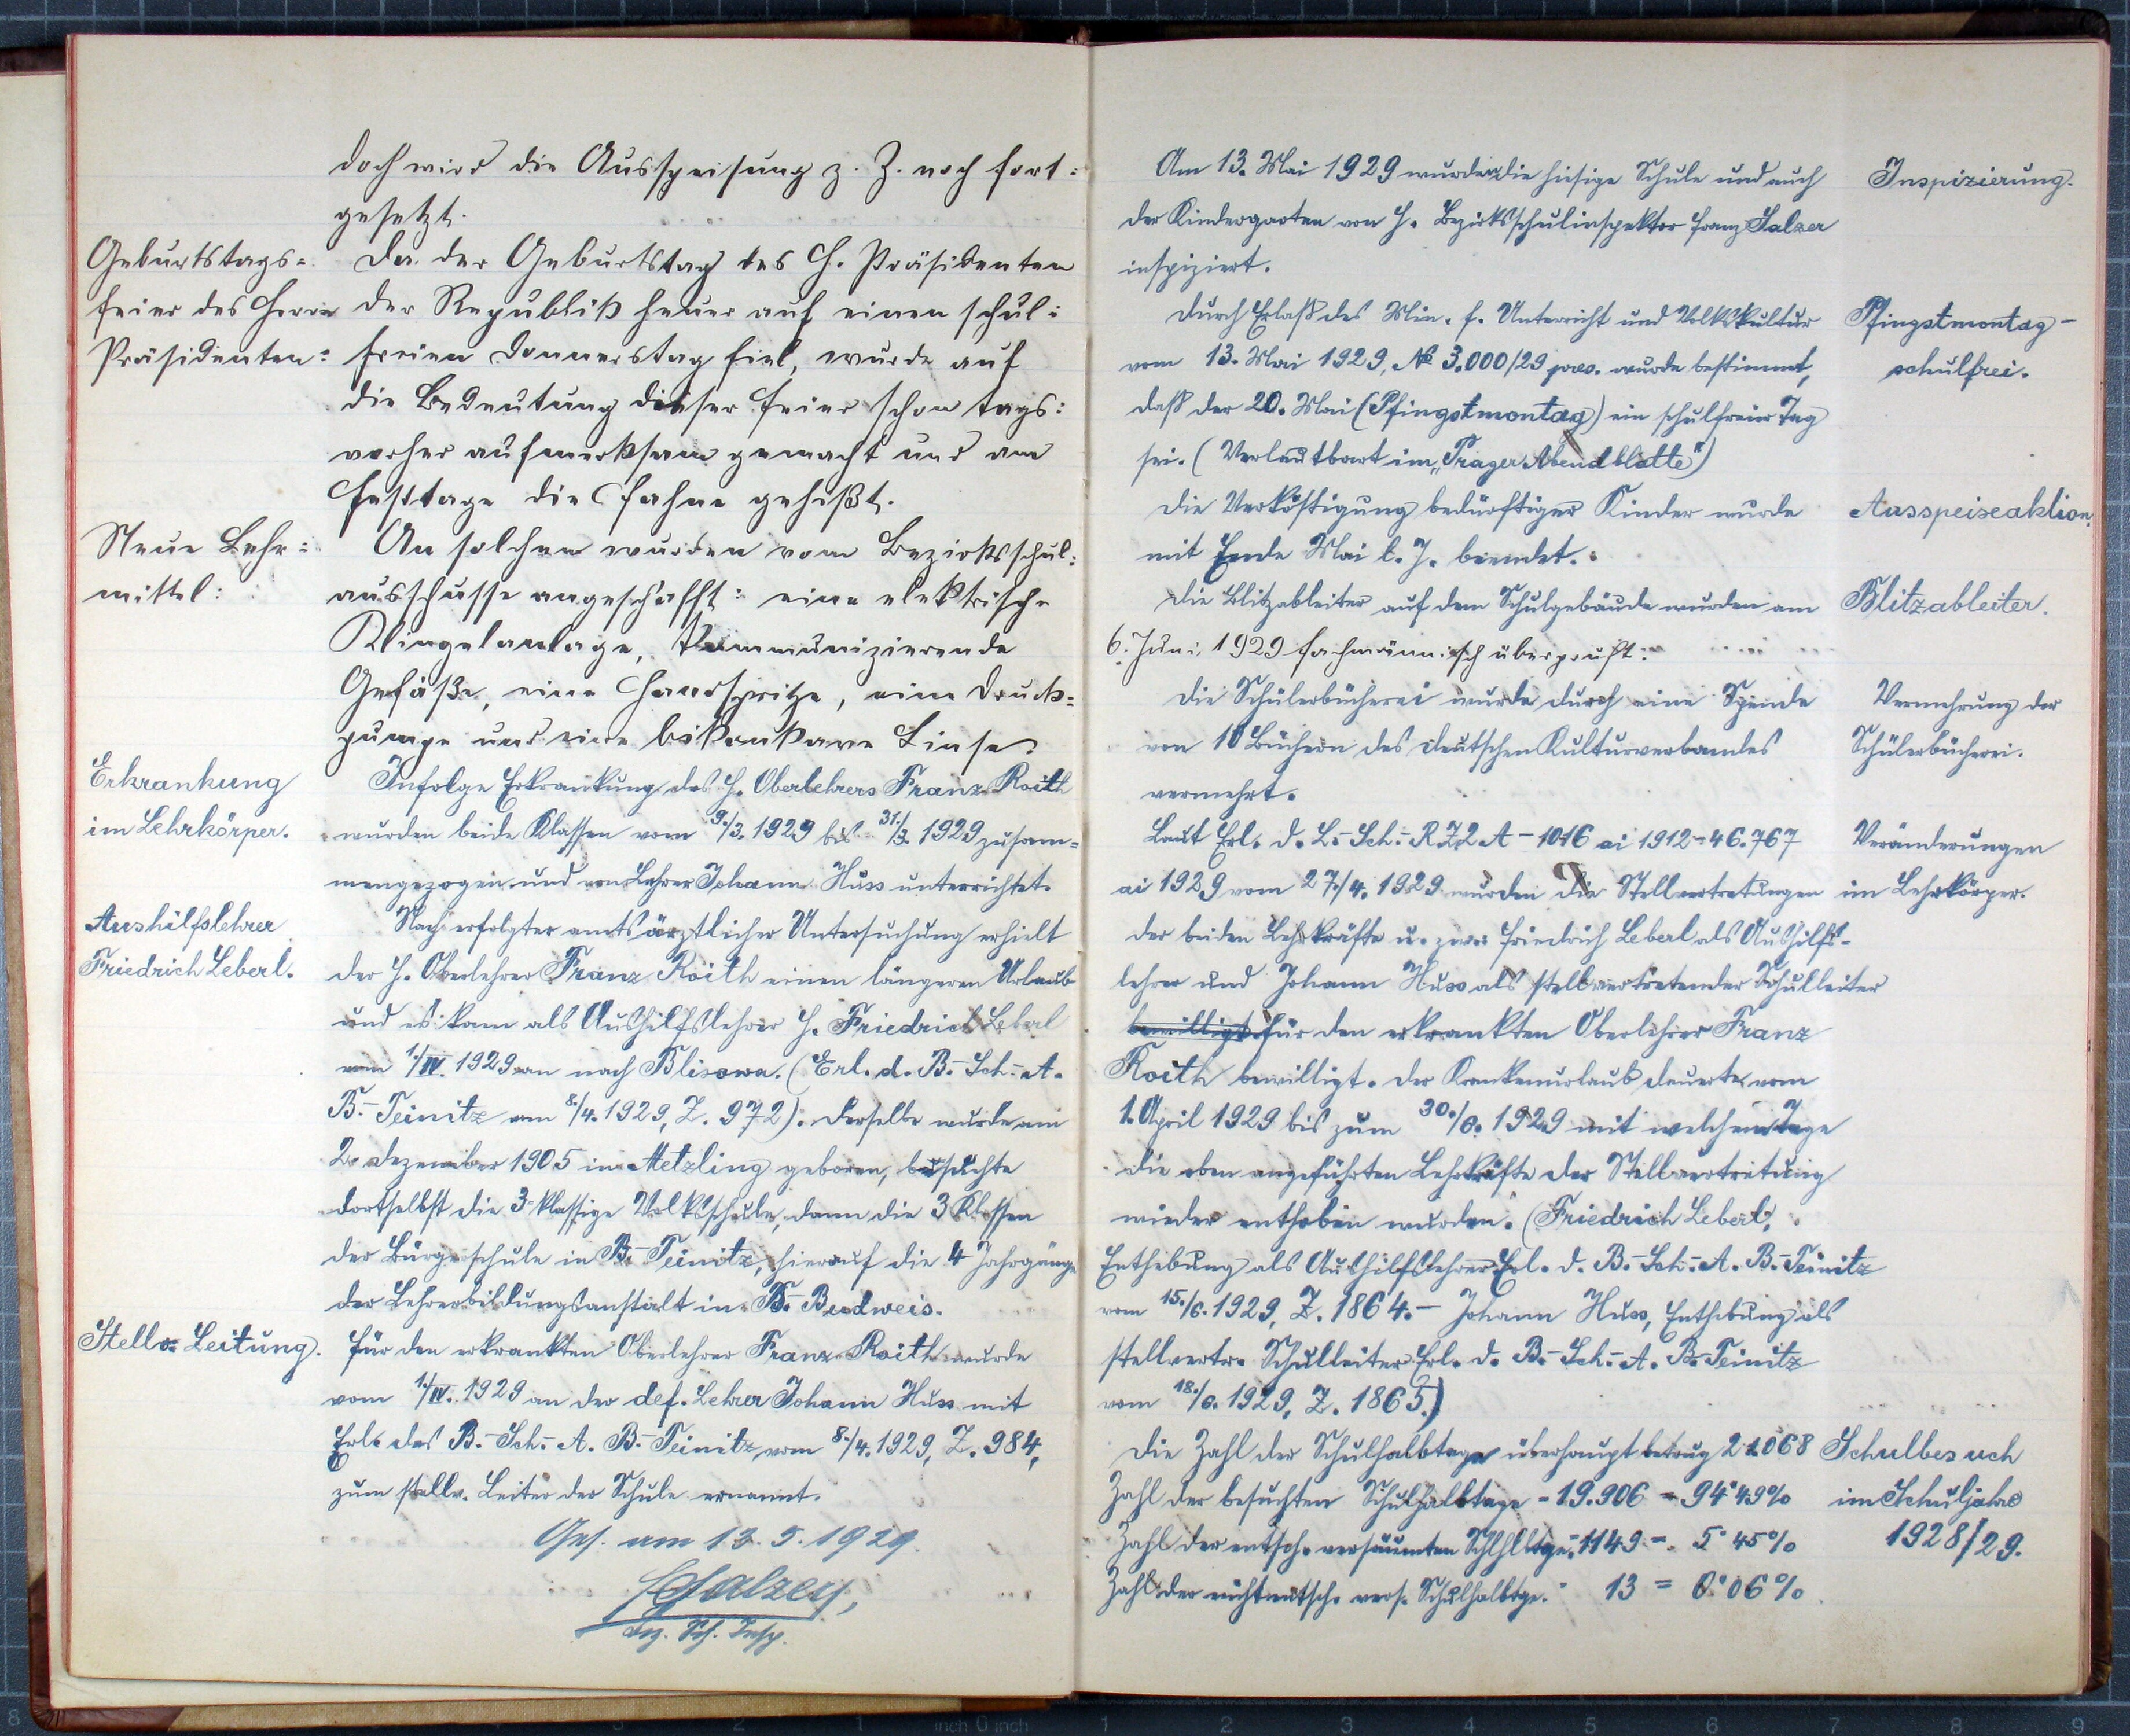 doch wird die Ausspeisung z. Z. noch fort=
gesetzt.
Geburtstags=
feier des Herrn
Präsidenten:
Da der Geburtstag des H. Präsidenten
der Republik heuer auf einen schul=
freien Donnerstag fiel, wurde auf
die Bedeutung dieser Feier schon tags=
vorher aufmerksam gemacht und am
Festtage die Fahne gehißt.
Neue Lehr=
mittel:
An solchen wurden vom Bezirksschul=
ausschusse angeschafft: eine elektrische
Klingelanlage, kommunizierende
Gefäße, eine Handspritze, eine Druck=
pumpe und eine bikonkave Linse.
Erkrankung
im Lehrkörper.
Infolge Erkrankung des H. Oberlehrers Franz Roith
wurden beide Klassen vom 9./3. 1929 bis 31./3. 1929 zusam=
mengezogen und von Lehrer Johann Huss unterrichtet.
Aushilfslehrer
Friedrich Leberl.
Nach erfolgter amtsärztlicher Untersuchung erhielt
der H. Oberlehrer Franz Roith einen längeren Urlaub
und es kam als Aushilfslehrer H. Friedrich Leberl
vom 1./IV. 1929 an nach Blisowa. (Erl. d. B.-Sch.-A.
B.-Teinitz vom 8./4. 1929, Z. 972). Derselbe wurde am
2. Dezember 1905 in Metzling geboren, besuchte
dortselbst die 3-klassige Volksschule, dann die 3 Klassen
der Bürgerschule in B.-Teinitz, hierauf die 4 Jahrgänge
der Lehrerbildungsanstalt in B. Budweis.
Stellv. Leitung.
Für den erkrankten Oberlehrer Franz Roith wurde
vom 1./IV. 1929 an der def. Lehrer Johann Huss mit
Erl. des B.-Sch.-A. B.-Teinitz vom 8./4. 1929, Z. 984,
zum stellv. Leiter der Schule ernannt.
Ges. am 13. 5. 1929.
FSalzer,
Bez. Sch. Insp.
Am 13. Mai 1929 wurden die hiesige Schule und auch
der Kindergarten von H. Bezirksschulinspektor Franz Salzer
inspiziert.
Inspizierung.
Durch Erlaß des Min. f. Unterricht und Volkskultur
vom 13. Mai 1929, № 3.000/29 pres. wurde bestimmt,
daß der 20. Mai (Pfingstmontag) ein schulfreier Tag
sei. (Verlautbart im „Prager Abendblatte")
Pfingstmontag -
schulfrei.
Die Verköstigung bedürftiger Kinder wurde
mit Ende Mai l. J. beendet.
Ausspeiseaktion.
Die Blitzableiter auf dem Schulgebäude wurden am
6. Juni 1929 fachmännisch überprüft.
Blitzableiter.
Die Schülerbücherei wurde durch eine Spende
von 10 Büchern des deutschen Kulturverbandes
vermehrt.
Vermehrung der
Schülerbücherei.
Laut Erl. d. L.-Sch.-R. Z 2 A - 1016 ai 1912 - 46.767
ai 1929 vom 27./4. 1929 wurden die Stellvertretungen
der beiden Lehrkräfte u. zwar Friedrich Leberl als Aushilfs-
lehrer und Johann Huss als stellvertretender Schulleiter
bewilligt für den erkrankten Oberlehrer Franz
Roith bewilligt. Der Krankenurlaub dauerte vom
1. April 1929 bis zum 30./6. 1929 mit welchem Tage
die oben angeführten Lehrkräfte der Stellvertretung
wieder enthoben wurden. (Friedrich Leberl,
Enthebung als Aushilfslehrer Erl. d. B.-Sch.-A. B.-Teinitz
vom 15./6. 1929, Z. 1864. - Johann Huss, Enthebung als
stellvertr. Schulleiter Erl. d. B.-Sch.-A. B.-Teinitz
vom 18./6. 1929, Z. 1865.)
Veränderungen
im Lehrkörper.
Die Zahl der Schulhalbtage überhaupt betrug 21.068
Zahl der besuchten Schulhalbtage = 19.906 = 94·49%
Zahl der entsch. versäumten Schlhlbtge. = 1149 = 5·45%
Zahl der nichtentsch. vers. Schulhalbtge. = 13 = 0·06%
Schulbesuch
im Schuljahre
1928/29.